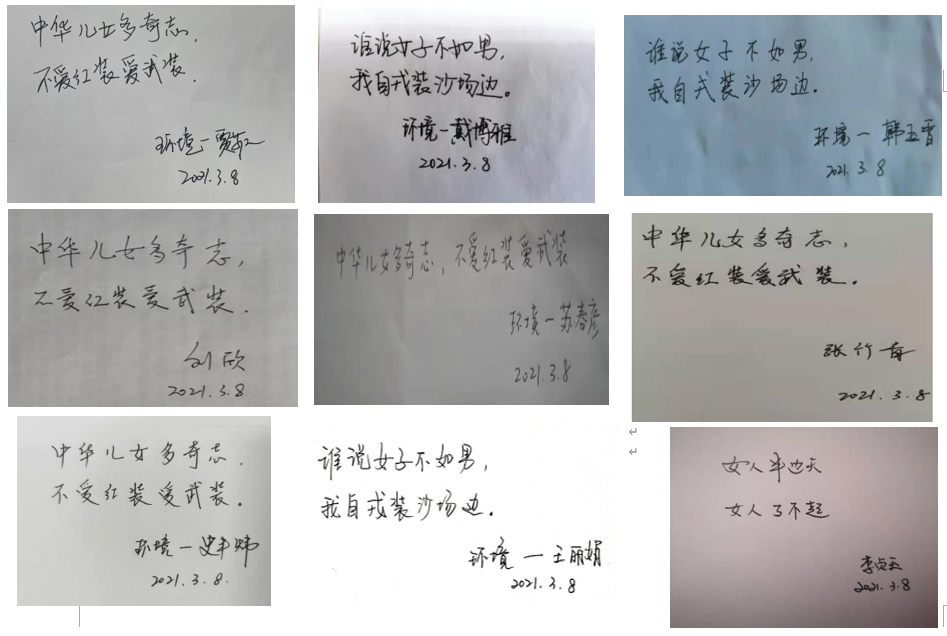 中华儿女多奇志,
不爱红装爱武装.
环境一
2021.3.8
谁说女子不如男,
我自戎装沙场边。
环境一戴博雅
2021.3.8
谁说女子不如男,
我自戎装沙场边.
环境一 韩玉雪
2021.3.8
中华儿女多奇志,
不爱红装爱武装.
刘欣
2021.3.8
中华儿女多奇志,不爱红装爱武装
环境一苏春彦
2021.3.8
中华儿女多奇志,
不爱红装爱武装。
张竹
2021.3.8
中华儿女多奇志.
不爱红装爱武装。
环境一史 炜
2021.3.8.
谁说女子不如男,
我自戎装沙场边.
环境一王丽娟
2021.3.8
女人半边天
女人了不起
李贞
2021.3.8